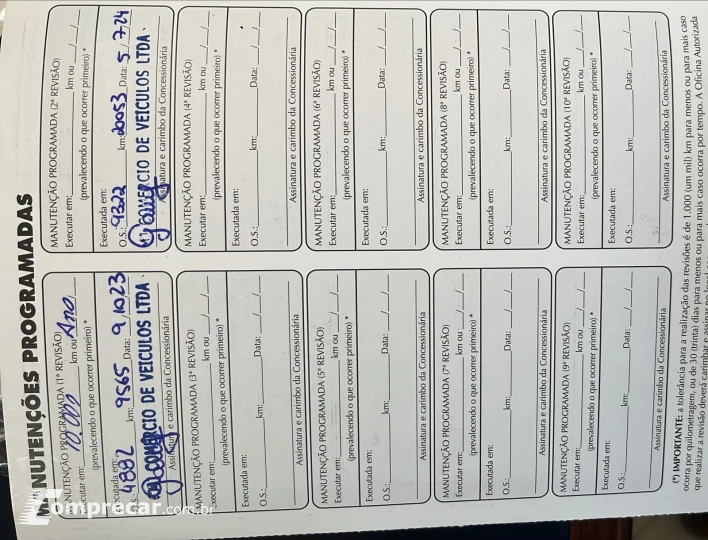 MANUTENÇÕES PROGRAMADAS
MANUTENÇÃO PROGRAMADA (1ª REVISÃO)
Executar em: 10.000 km ou Ano
(prevalecendo o que ocorrer primeiro) *
Executada em:
O.S.: 4882 km: 9565 Data: 9/10/23
COMÉRCIO DE VEÍCULOS LTDA.
Assinatura e carimbo da Concessionária
MANUTENÇÃO PROGRAMADA (2ª REVISÃO)
Executar em: km ou / /
(prevalecendo o que ocorrer primeiro) *
Executada em:
O.S.: 9322 km: 20053 Data: 5/7/24
COMÉRCIO DE VEÍCULOS LTDA.
Assinatura e carimbo da Concessionária
MANUTENÇÃO PROGRAMADA (3ª REVISÃO)
Executar em: km ou / /
(prevalecendo o que ocorrer primeiro) *
Executada em:
O.S.: km: Data: / /
Assinatura e carimbo da Concessionária
MANUTENÇÃO PROGRAMADA (4ª REVISÃO)
Executar em: km ou / /
(prevalecendo o que ocorrer primeiro) *
Executada em:
O.S.: km: Data: / /
Assinatura e carimbo da Concessionária
MANUTENÇÃO PROGRAMADA (5ª REVISÃO)
Executar em: km ou / /
(prevalecendo o que ocorrer primeiro) *
Executada em:
O.S.: km: Data: / /
Assinatura e carimbo da Concessionária
MANUTENÇÃO PROGRAMADA (6ª REVISÃO)
Executar em: km ou / /
(prevalecendo o que ocorrer primeiro) *
Executada em:
O.S.: km: Data: / /
Assinatura e carimbo da Concessionária
MANUTENÇÃO PROGRAMADA (7ª REVISÃO)
Executar em: km ou / /
(prevalecendo o que ocorrer primeiro) *
Executada em:
O.S.: km: Data: / /
Assinatura e carimbo da Concessionária
MANUTENÇÃO PROGRAMADA (8ª REVISÃO)
Executar em: km ou / /
(prevalecendo o que ocorrer primeiro) *
Executada em:
O.S.: km: Data: / /
Assinatura e carimbo da Concessionária
MANUTENÇÃO PROGRAMADA (9ª REVISÃO)
Executar em: km ou / /
(prevalecendo o que ocorrer primeiro) *
Executada em:
O.S.: km: Data: / /
Assinatura e carimbo da Concessionária
MANUTENÇÃO PROGRAMADA (10ª REVISÃO)
Executar em: km ou / /
(prevalecendo o que ocorrer primeiro) *
Executada em:
O.S.: km: Data: / /
Assinatura e carimbo da Concessionária
(*) IMPORTANTE: a tolerância para a realização das revisões é de 1.000 (um mil) km para menos ou para mais caso
ocorra por quilometragem, ou de 30 (trinta) dias para menos ou para mais caso ocorra por tempo. A Oficina Autorizada
que realizar a revisão deverá carimbar e assinar no local
Comprecar.com.br